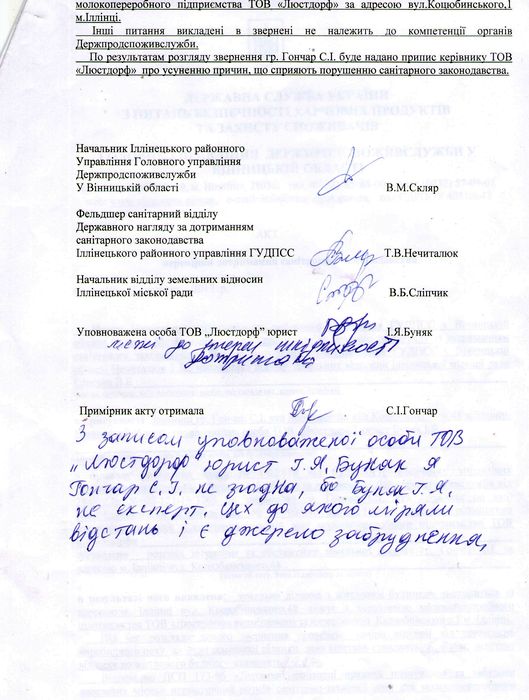 молокопереробного підприємства ТОВ «Люстдорф» за адресою вул.Коцюбинського,1
м.Іллінці.
Інші питання викладені в зверненні не належить до компетенції органів
Держпродспоживслужби.
По результатам розгляду звернення гр. Гончар С.І. буде надано припис керівнику ТОВ
«Люстдорф» про усуненню причин, що сприяють порушенню санітарного законодавства.
Начальник Іллінецького районного
Управління Головного управління
Держпродспоживслужби
У Вінницькій області В.М.Скляр
Фельдшер санітарний відділу
Державного нагляду за дотриманням
санітарного законодавства
Іллінецького районного управління ГУДПСС Т.В.Нечиталюк
Начальник відділу земельних відносин
Іллінецької міської ради В.Б.Сліпчик
Уповноважена особа ТОВ „Люстдорф” юрист І.Я.Буняк
межі до джерел шкідливості
дотримана
Примірник акту отримала С.І.Гончар
З записом уповноваженої особи ТОВ
„Люстдорф" юрист І.Я. Буняк я
Гончар С.І. не згодна, бо Буняк І.Я.
не експерт. Цех до якого міряли
відстань і є джерело забруднення,